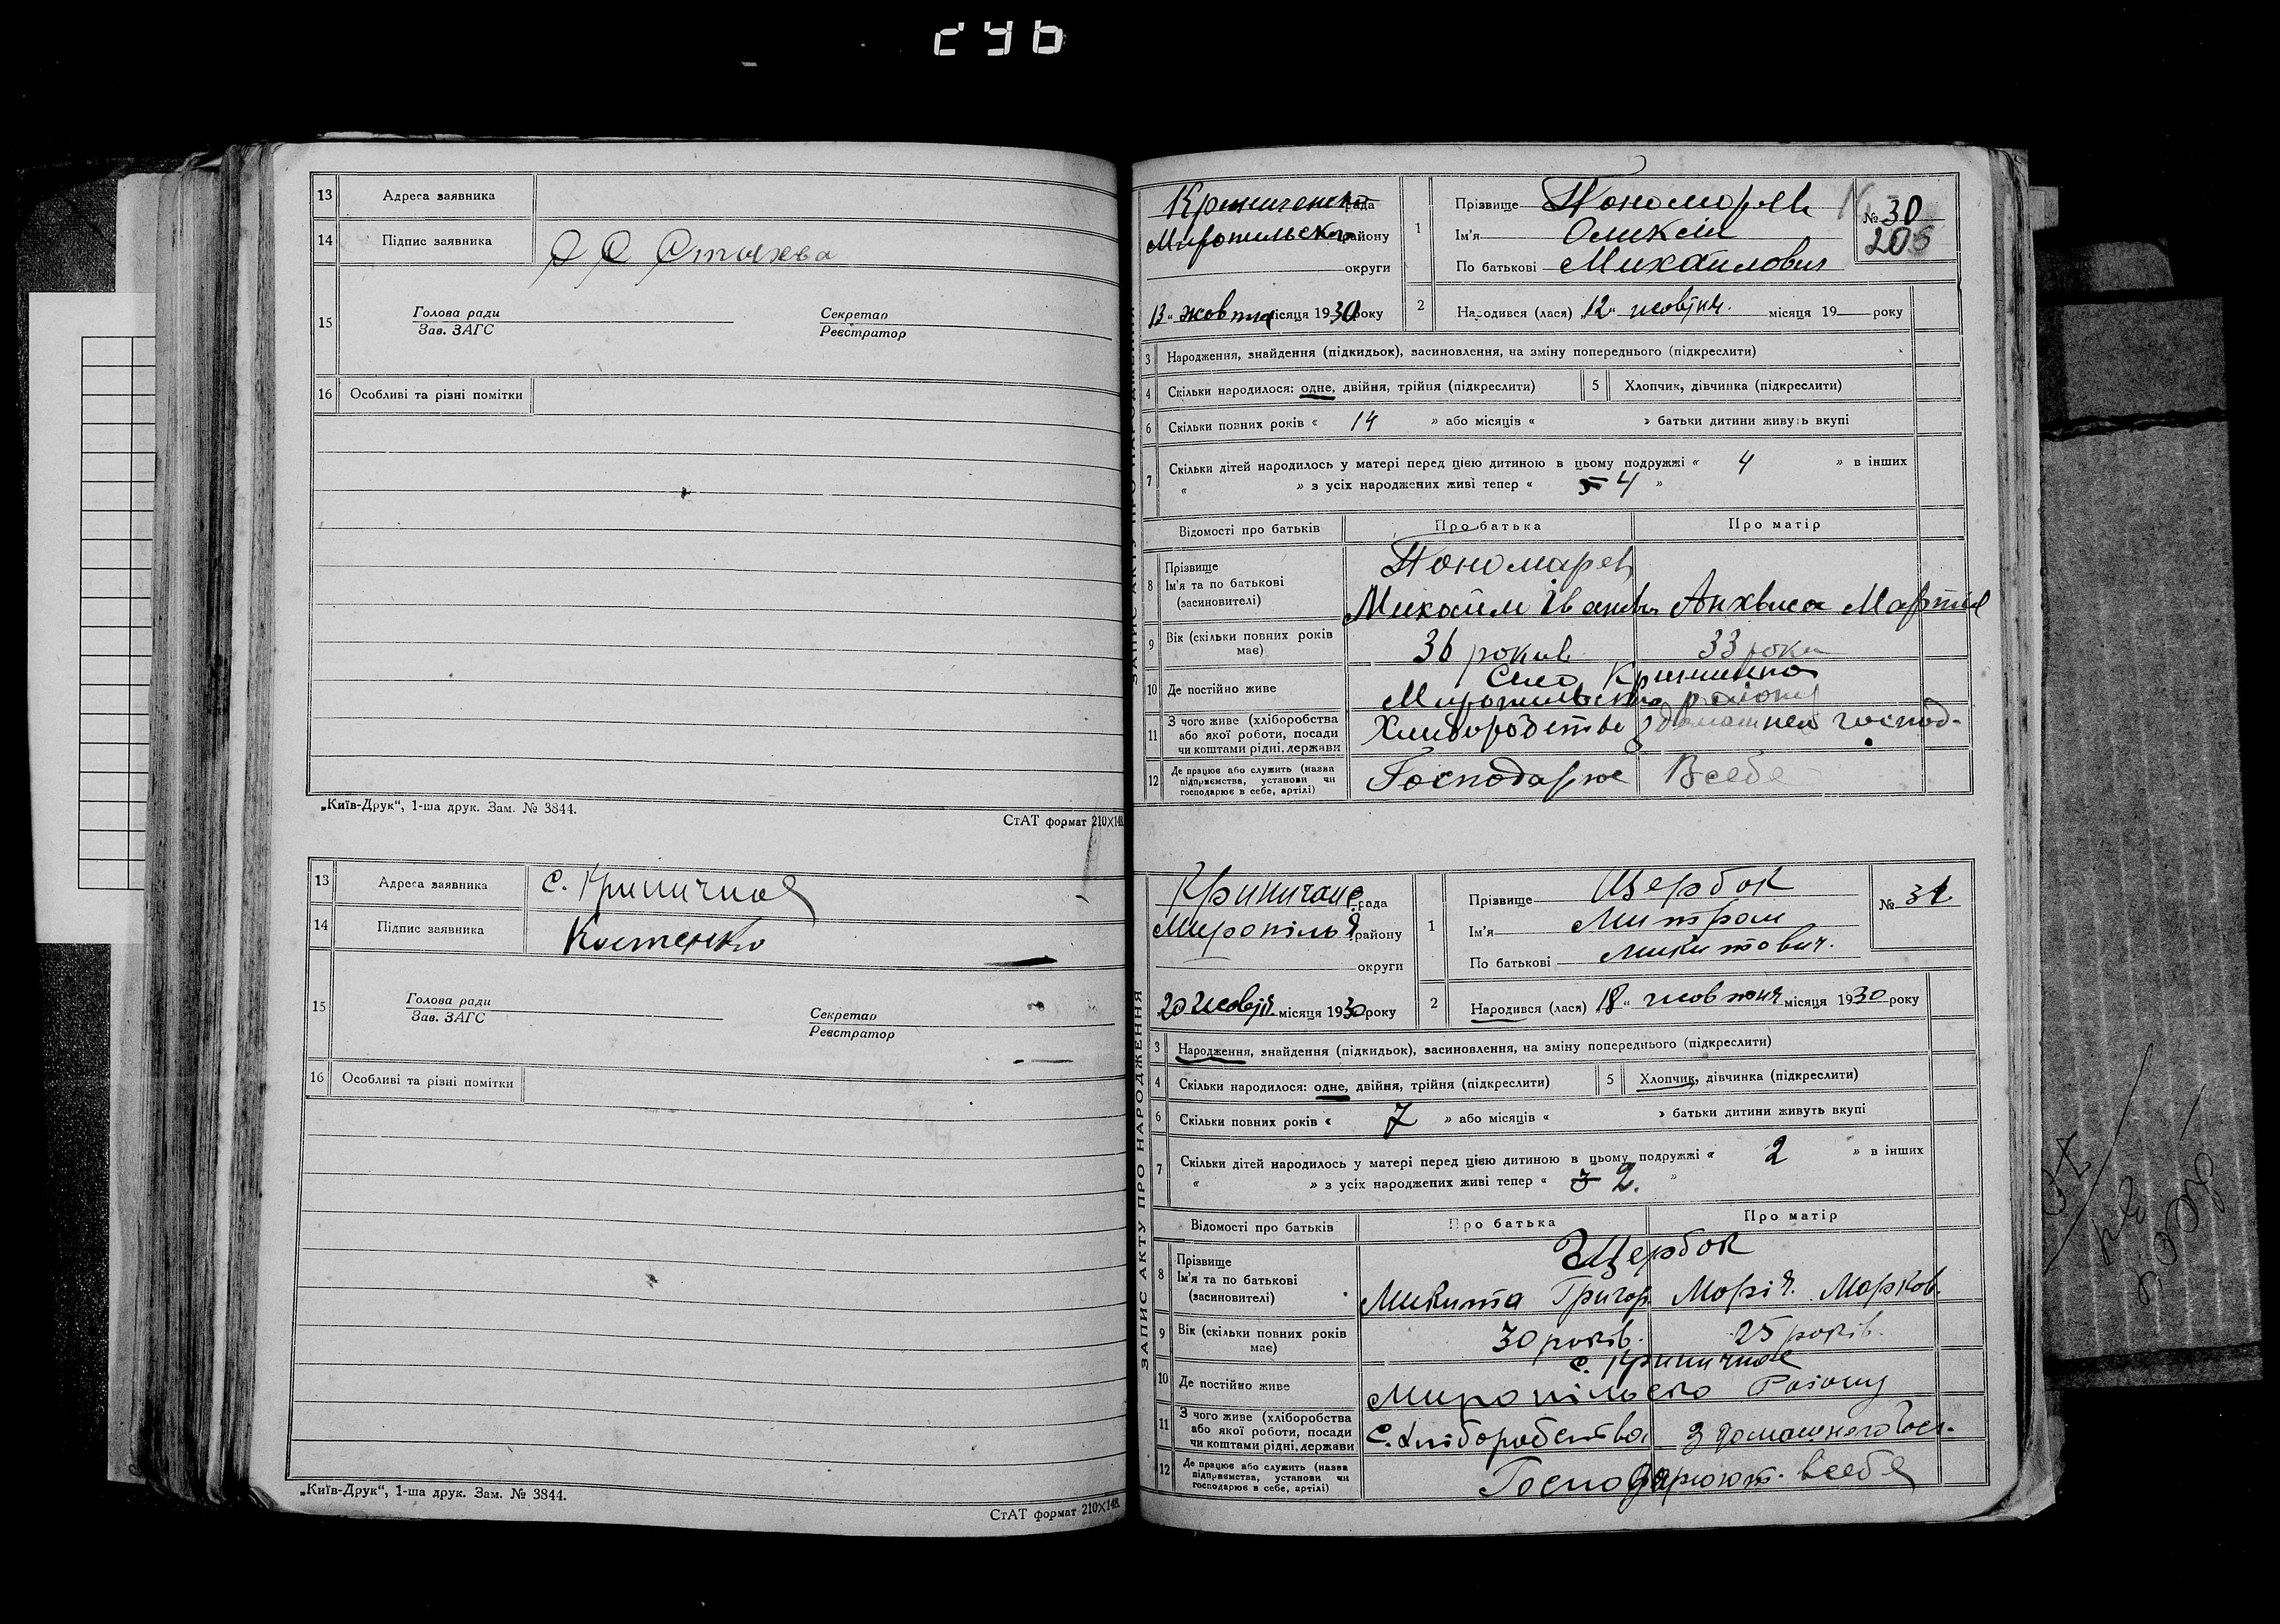 13 Адреса заявника
14 Підпис заявника
15 Голова ради Секретар
Зав. ЗАГС Реєстратор
16 Особливі та різні помітки
„Київ-Друк“, 1-ша друк. Зам. № 3844.
СтАТ формат 210×148.
13 Адреса заявника с. Криничная
14 Підпис заявника Костенко
15 Голова ради Секретар
Зав. ЗАГС Реєстратор
16 Особливі та різні помітки
„Київ-Друк“, 1-ша друк. Зам. № 3844.
СтАТ формат 210×148.
ЗАПИС АКТУ ПРО НАРОДЖЕННЯ
рада
району
округи
13 " жовтня місяця 1930 року
1 Прізвище Пономарев
Ім'я Олексій
По батькові Михайлович
№ 30
205
2 Народився (лася) „12" жовтня місяця 19 року
3 Народження, знайдення (підкидьок), засиновлення, на зміну попереднього (підкреслити)
4 Скільки народилося: одне, двійня, трійня (підкреслити) 5 Хлопчик, дівчинка (підкреслити)
6 Скільки повних років « 14 » або місяців « » батьки дитини живуть вкупі
7 Скільки дітей народилось у матері перед цією дитиною в цьому подружжі « 4 » в інших
« » з усіх народжених живі тепер « 5 4 »
Відомості про батьків Про батька Про матір
8 Прізвище
Ім'я та по батькові
(засиновителі)
Пономарев
Михайил Іванов Анхвиса Мартин
9 Вік (скільки повних років має) 36 рокив 33 роки
10 Де постійно живе Село Кринична
Миропильского району
11 З чого живе (хліборобства або якої роботи, посади чи коштами рідні, держави Хлиборобство з домашнего господ-
12 Де працює або служить (назва підприємства, установи чи господарює в себе, артілі) Господарює Всебе
ЗАПИС АКТУ ПРО НАРОДЖЕННЯ
рада
Миропілья району
округи
20 Жовтня місяця 1930 року
1 Прізвище Щербак
Ім'я Митрофан
По батькові Микитович.
№ 31
2 Народився (лася) 18 " жовтня місяця 1930 року
3 Народження, знайдення (підкидьок), засиновлення, на зміну попереднього (підкреслити)
4 Скільки народилося: одне, двійня, трійня (підкреслити) 5 Хлопчик, дівчинка (підкреслити)
6 Скільки повних років « 7 » або місяців « » батьки дитини живуть вкупі
7 Скільки дітей народилось у матері перед цією дитиною в цьому подружжі « 2 » в інших
« » з усіх народжених живі тепер « 3 2. »
Відомості про батьків Про батька Про матір
8 Прізвище
Ім'я та по батькові
(засиновителі)
Щербак
Микита Григор Марія. Марков.
9 Вік (скільки повних років має) 30 років. 25 років.
10 Де постійно живе с. Криничная
Миропільского Району
11 З чого живе (хліборобства або якої роботи, посади чи коштами рідні, держави С. хліборобства З домашнего Гос.
12 Де працює або служить (назва підприємства, установи чи господарює в себе, артілі) Господарюют. всебе